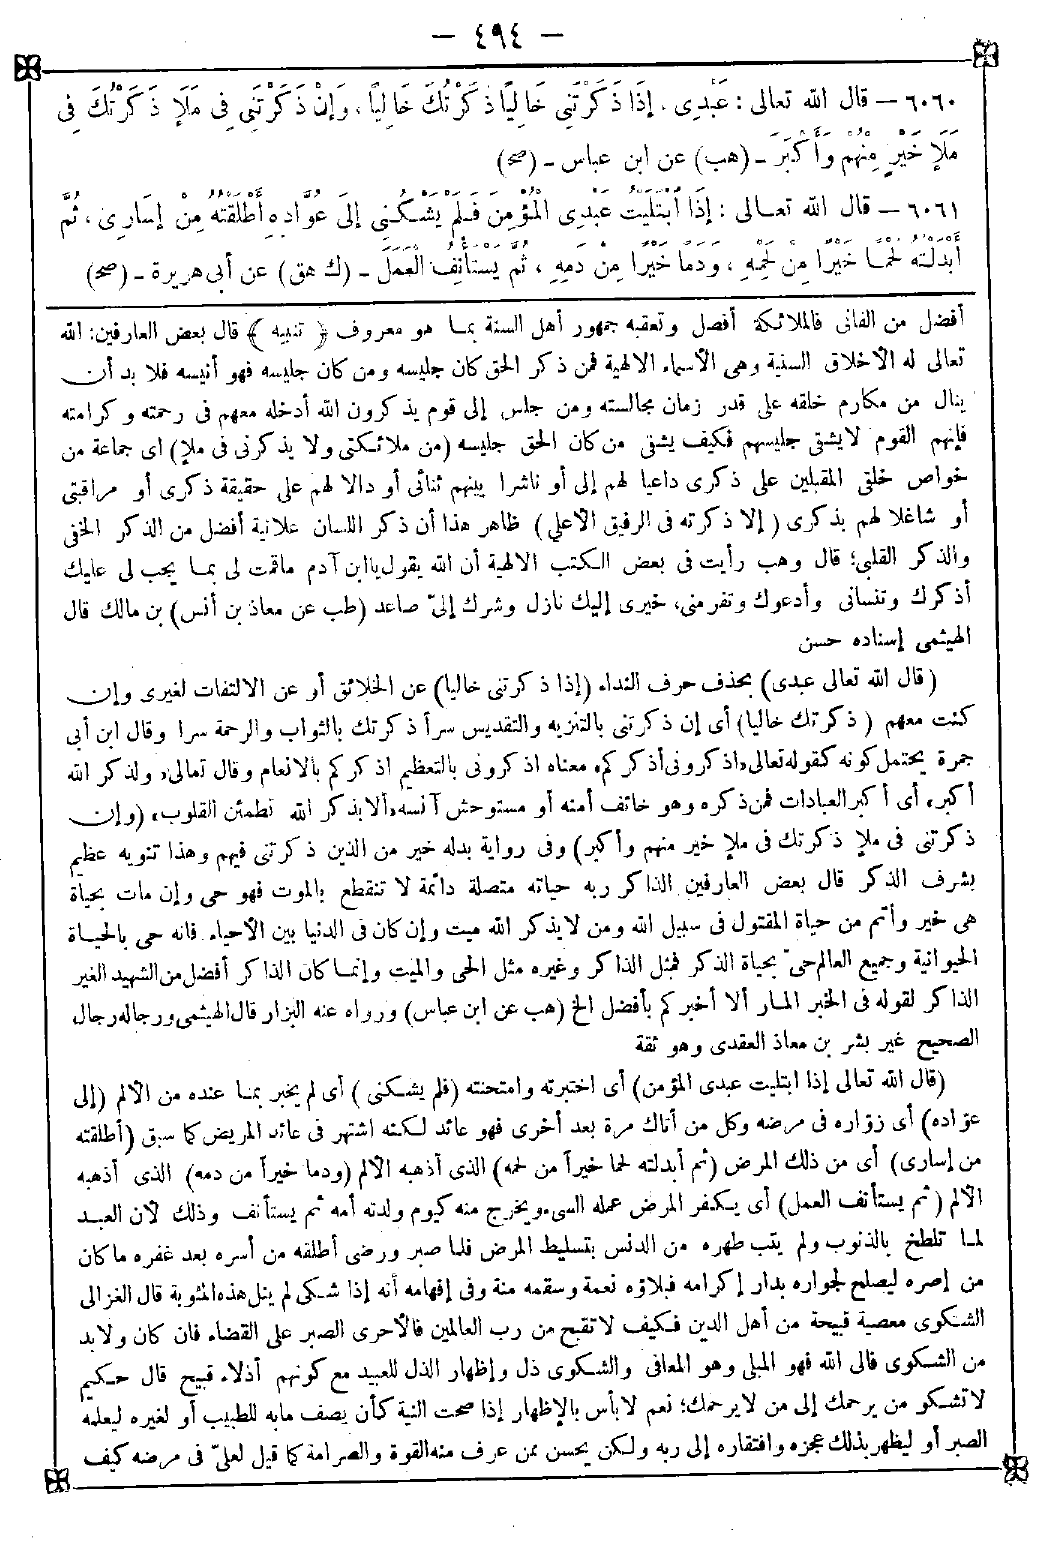 — ٤٩٤ —
٦٠٦٠ — قال الله تعالى : عَبْدِى ، إِذَا ذَكَرْتَنِى خَالِيًا ذَكَرْتُكَ خَالِيًا ، وَإِنْ ذَكَرْتَنِى فِى مَلَإٍ ذَكَرْتُكَ فِى
مَلَإٍ خَيْرٍ مِنْهُمْ وَأَكْبَرَ - (هب) عن ابن عباس - (صح)
٦٠٦١ — قال الله تعالى : إِذَا ابْتَلَيْتُ عَبْدِى الْمُؤْمِنَ فَلَمْ يَشْكُنِى إِلَى عُوَّادِهِ أَطْلَقْتُهُ مِنْ إِسَارِى ، ثُمَّ
أَبْدَلْتُهُ لَحْمًا خَيْرًا مِنْ لَحْمِهِ ، وَدَمًا خَيْرًا مِنْ دَمِهِ ، ثُمَّ يَسْتَأْنِفُ الْعَمَلَ - (ك هق) عن أبى هريرة - (صح)
أفضل من الفانى فالملائكة أفصل وتعقبه جمهور أهل السنة بما هو معروف ﴿ تنبيه ﴾ قال بعض العارفين: الله
تعالى له الأخلاق السنية وهى الأسماء الالهية فمن ذكر الحق كان جليسه ومن كان جليسه فهو أنيسه فلا بد أن
ينال من مكارم خلقه على قدر زمان مجالسته ومن جلس إلى قوم يذكرون الله أدخله معهم فى رحمته وكرامته
فإنهم القوم لايشقى جليسهم فكيف يشقى من كان الحق جليسه (من ملائكتى ولا يذكرنى فى ملإ) اى جماعة من
خواص خلقى المقبلين على ذكرى داعيا لهم إلى أو ناشرا بينهم ثنائى أو دالا لهم على حقيقة ذكرى أو مراقبتى
أو شاغلا لهم بذكرى (إلا ذكرته فى الرفيق الأعلى) ظاهر هذا أن ذكر اللسان علانية أفضل من الذكر الخفى
والذكر القلبى؛ قال وهب رأيت فى بعض الكتب الالهية أن الله يقول ياابن آدم ماقمت لى بما يجب لى عليك
أذكرك وتنسانى وأدعوك وتفر منى، خيرى إليك نازل وشرك إلىّ صاعد (طب عن معاذ بن أنس) بن مالك قال
الهيثمى إسناده حسن
(قال الله تعالى عبدى) بحذف حرف النداء (إذا ذكرتنى خاليا) عن الخلائق أو عن الالتفات لغيرى وإن
كنت معهم (ذكرتك خاليا) أى إن ذكرتنى بالتنزيه والتقديس سرا ذكرتك بالثواب والرحمة سرا وقال ابن أبى
جمرة يحتمل كونه كقوله تعالى «اذكرونى أذكركم» معناه اذكرونى بالتعظيم اذكركم بالانعام وقال تعالى «ولذكر الله
أكبر» أى أكبر العبادات فمن ذكره وهو خائف أمنه أو مستوحش آنسه «ألا بذكر الله تطمئن القلوب» (وإن
ذكرتنى فى ملإ ذكرتك فى ملإ خير منهم وأكبر) وفى رواية بدله خير من الذين ذكرتنى فيهم وهذا تنويه عظيم
بشرف الذكر قال بعض العارفين الذاكر ربه حياته متصلة دائمة لا تنقطع بالموت فهو حى وإن مات بحياة
هى خير وأتم من حياة المقتول فى سبيل الله ومن لايذكر الله ميت وإن كان فى الدنيا بين الأحياء فانه حى بالحياة
الحيوانية وجميع العالم حىّ بحياة الذكر فمثل الذاكر وغيره مثل الحى والميت وإنما كان الذاكر أفضل من الشهيد الغير
الذاكر لقوله فى الخبر المار ألا أخبركم بأفضل الخ (هب عن ابن عباس) ورواه عنه البزار قال الهيثمى ورجاله رجال
الصحيح غير بشر بن معاذ العقدى وهو ثقة
(قال الله تعالى إذا ابتليت عبدى المؤمن) أى اختبرته وامتحنته (فلم يشكنى) أى لم يخبر بما عنده من الألم (إلى
عوّاده) أى زوّاره فى مرضه وكل من أتاك مرة بعد أخرى فهو عائد لكنه اشتهر فى عائد المريض كما سبق (أطلقته
من إسارى) أى من ذلك المرض (ثم أبدلته لحما خيراً من لحمه) الذى أذهبه الألم (ودما خيراً من دمه) الذى أذهبه
الألم (ثم يستأنف العمل) أى يكفر المرض عمله السىء ويخرج منه كيوم ولدته أمه ثم يستأنف وذلك لأن العبد
لما تلطخ بالذنوب ولم يتب طهره من الدنس بتسليط المرض فلما صبر ورضى أطلقه من أسره بعد غفره ما كان
من إصره ليصلح لجواره بدار إكرامه فبلاؤه نعمة وسقمه منة وفى إفهامه أنه إذا شكى لم ينل هذه المثوبة قال الغزالى
الشكوى معصية قبيحة من أهل الدين فكيف لا تقبح من رب العالمين فالأحرى الصبر على القضاء فان كان ولابد
من الشكوى فالى الله فهو المبلى وهو المعافى والشكوى ذل وإظهار الذل للعبيد مع كونهم أذلاء قبيح قال حكيم
لاتشكو من يرحمك إلى من لايرحمك؛ نعم لابأس بالإظهار إذا صحت النية كأن يصف مابه للطبيب أو لغيره ليعلمه
الصبر أو ليظهر بذلك عجزه وافتقاره إلى ربه ولكن يحسن ممن عرف منه القوة والصرامة كما قيل لعلىّ فى مرضه كيف